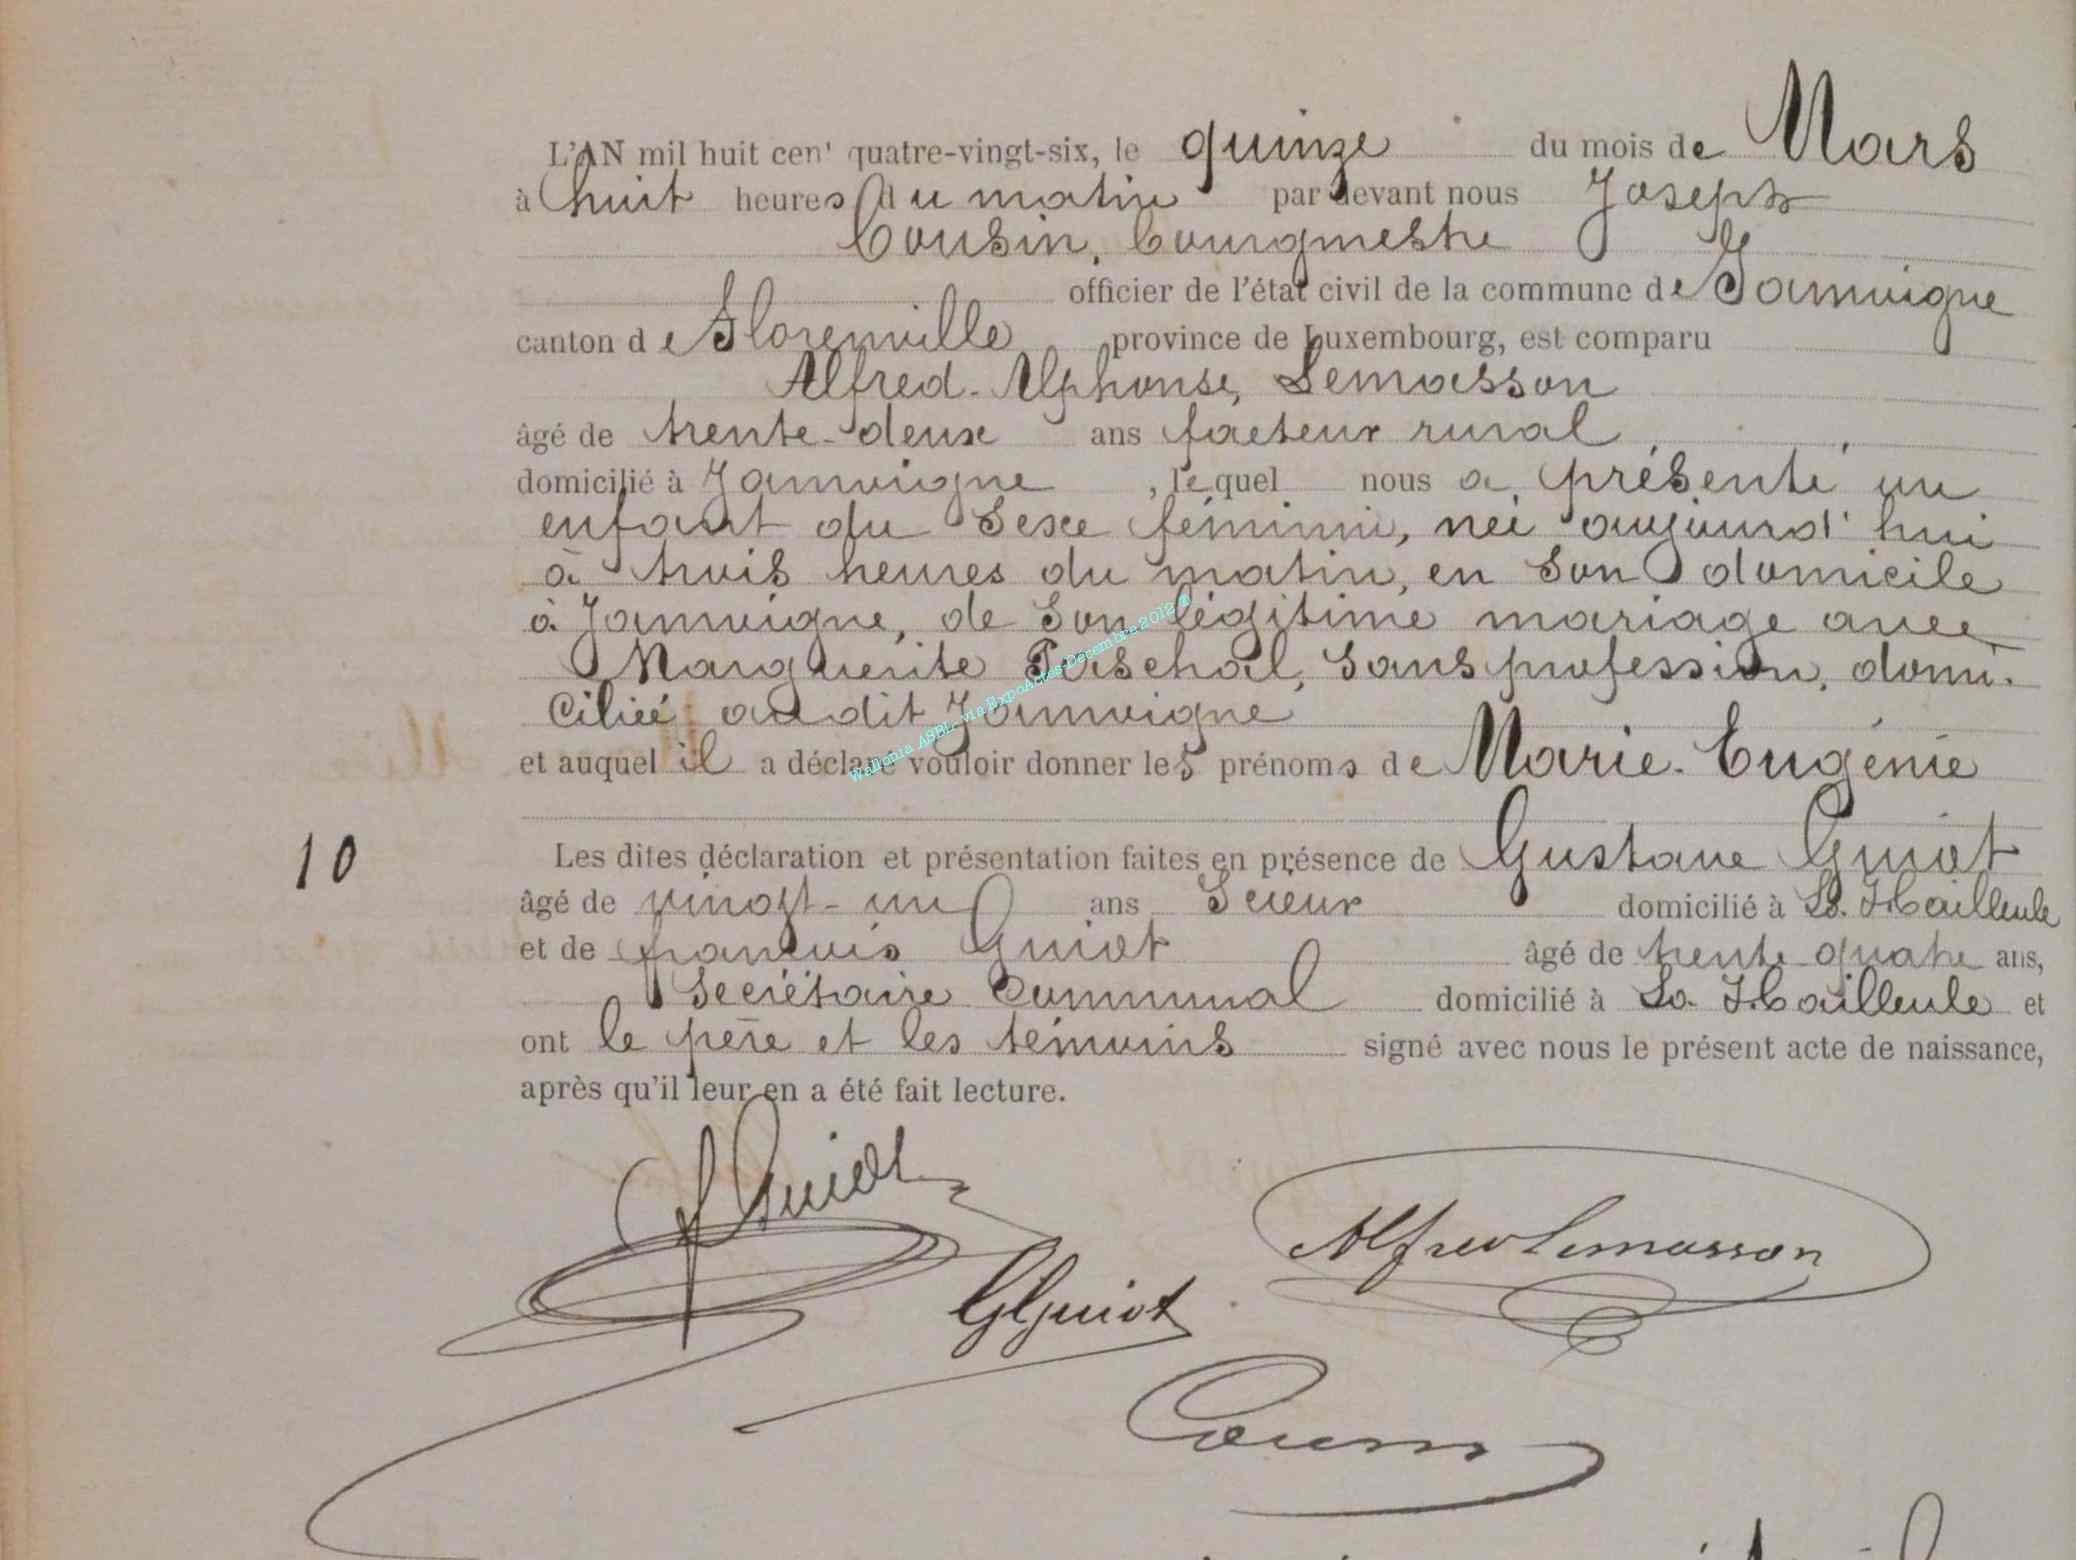 L'AN mil huit cent quatre-vingt-six, le quinze du mois de Mars
à huit heures du matin par devant nous Joseph
Cousin, bourgmestre
officier de l'état civil de la commune de Jamoigne
canton de Florenville province de Luxembourg, est comparu
Alfred-Alphonse, Lemasson
âgé de trente-deux ans facteur rural
domicilié à Jamoigne, lequel nous a présenté un
enfant du sexe féminin, née aujourd'hui
à trois heures du matin, en son domicile
à Jamoigne, de son légitime mariage avec
Marguerite Perschal, sans profession, domi-
ciliée audit Jamoigne
et auquel il a déclaré vouloir donner les prénoms de Marie-Eugénie
10 Les dites déclaration et présentation faites en présence de Gustave Guiot
âgé de vingt-un ans Scieur domicilié à La Hailleule
et de françois Guiot âgé de trente quatre ans,
Secrétaire Communal domicilié à La Hailleule et
ont le père et les témoins signé avec nous le présent acte de naissance,
après qu'il leur en a été fait lecture.
F Guiot
Alfred Lemasson
G Guiot
Cousin
Wallonia ASBL, via ExpoActes-Decembre 2012